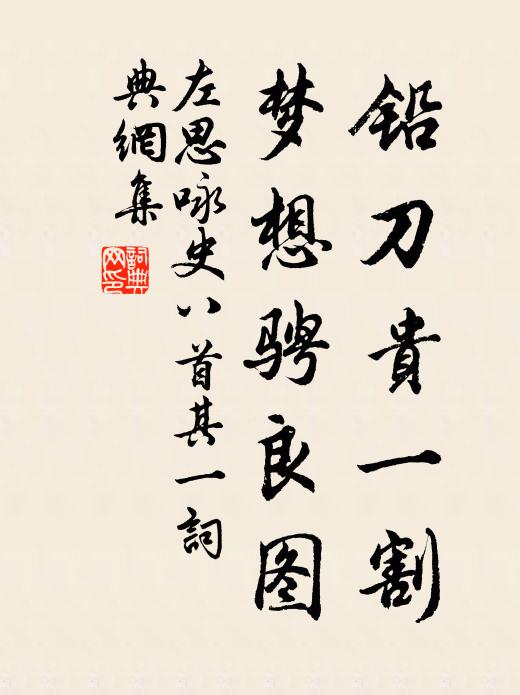 铅刀貴一割
梦想骋良图
左思咏史八首其一詞
典網集
詞典
网印